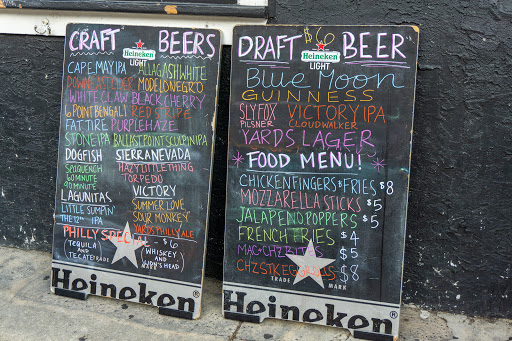 CRAFT BEERS
Heineken
LIGHT
CAPE MAY IPA ALLAGASH WHITE
DOWNEAST CIDER MODELO NEGRO
WHITE CLAW BLACK CHERRY
6 POINT BENGALI RED STRIPE
FAT TIRE PURPLE HAZE
STONE IPA BALLAST POINT SCULPIN IPA
DOGFISH SIERRA NEVADA
SPIQUENCH HAZY LITTLE THING
60 MINUTE TORPEDO
90 MINUTE
LAGUNITAS VICTORY
LITTLE SUMPIN SUMMER LOVE
THE 12TH IPA SOUR MONKEY
YARDS PHILLY ALE
PHILLY SPECIAL - $6
(TEQUILA AND TECATE) (WHISKEY AND LION'S HEAD)
TRADE
Heineken®
$6
DRAFT BEER
Heineken
LIGHT
Blue Moon
GUINNESS
SLY FOX VICTORY IPA
PILSNER CLOUDWALKER
YARDS LAGER
FOOD MENU!
CHICKEN FINGERS & FRIES $8
MOZZARELLA STICKS $5
JALAPENO POPPERS $5
FRENCH FRIES $4
MAC + CHZ BITES $5
CHZSTK EGGROLLS $8
TRADE MARK
Heineken®